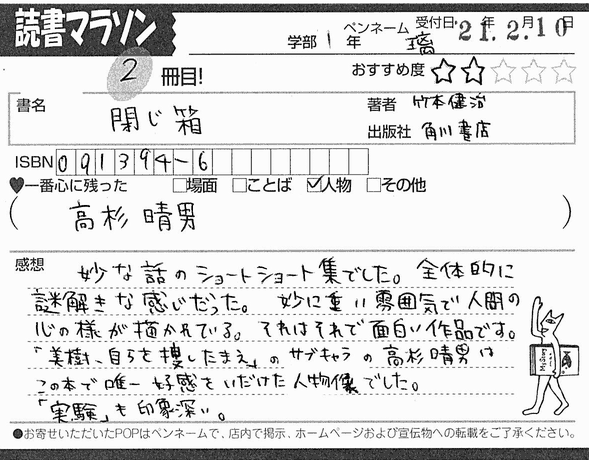 読書マラソン
学部 1 年 ペンネーム 璃 受付日 '21年 2月10日
2 冊目!
おすすめ度 ★★☆☆☆
書名 閉じ箱
著者 竹本健治
出版社 角川書店
ISBN 091394-6
♥一番心に残った □場面 □ことば ☑人物 □その他
(高杉 晴男)
感想 妙な話のショートショート集でした。全体的に
謎解きな感じだった。 妙に重い雰囲気で人間の
心の様が描かれている。それはそれで面白い作品です。
「美樹、自らを捜したまえ」のサブキャラの高杉晴男は
この本で唯一好感をいだけた人物像でした。
「実験」も印象深い。
●お寄せいただいたPOPはペンネームで、店内で掲示、ホームページおよび宣伝物への転載をご了承ください。